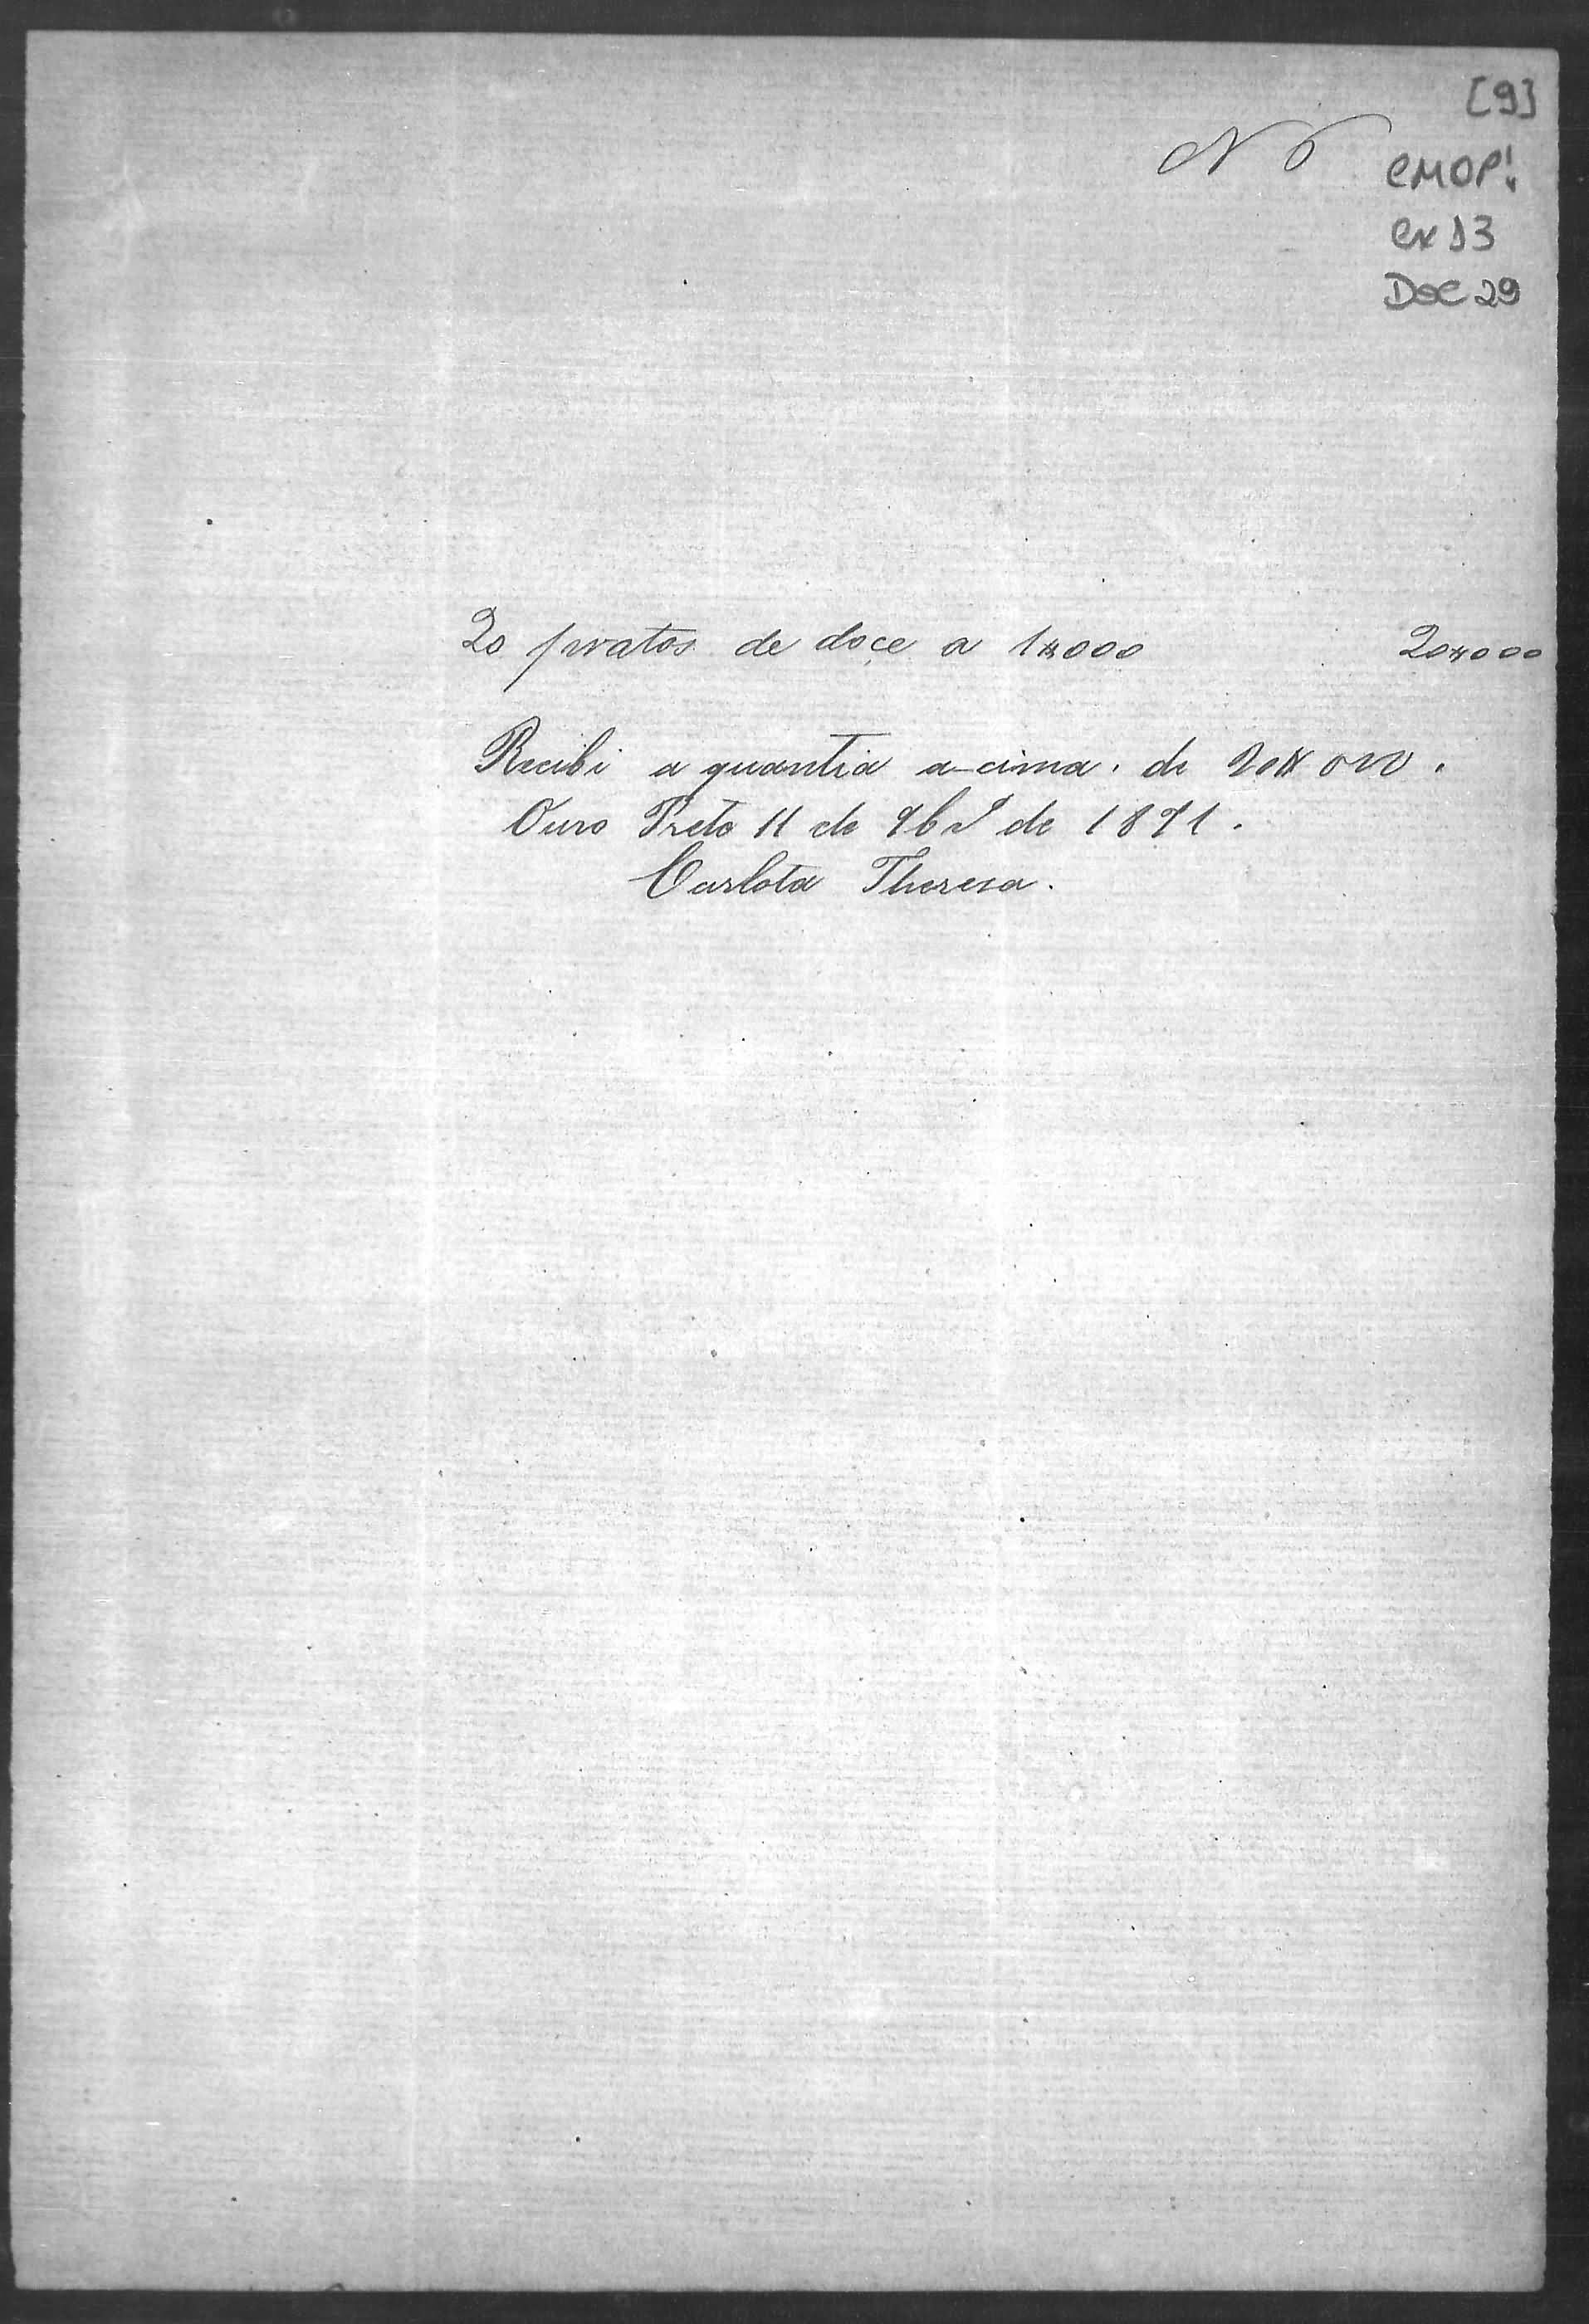 [9]
N 6
CMOP!
Cx 13
Doc 29
20 pratos de doce a 1$000 20$000
Recibi a quantia a-cima. de 20$000.
Ouro Preto 11 de 9br de 1891.
Carlota Thereza.